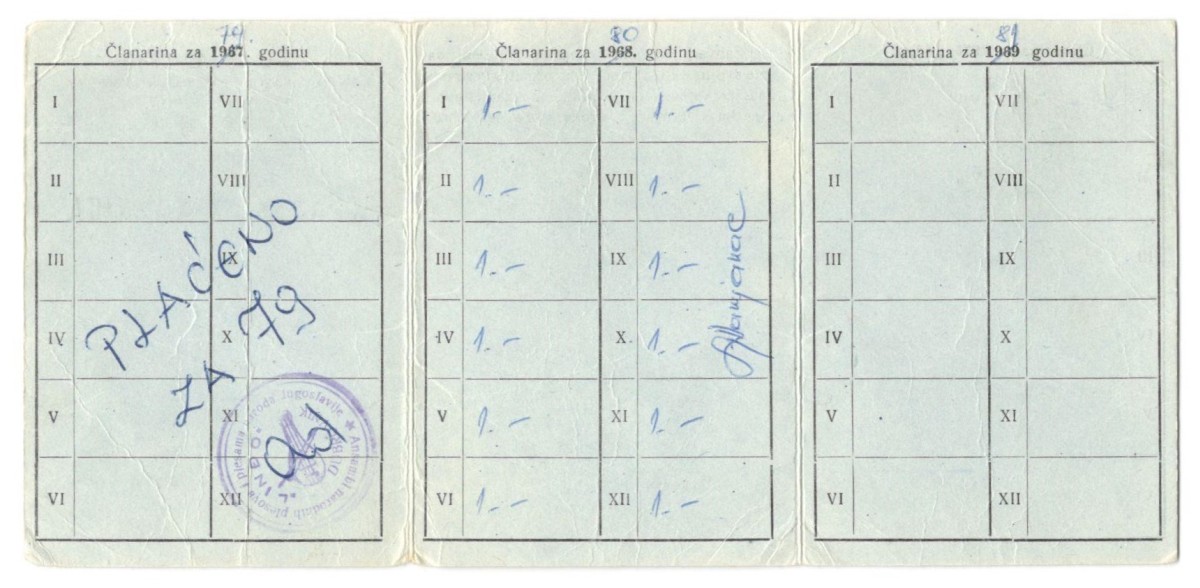 79
Članarina za 1967. godinu
I
VII
II
VIII
III
IX
IV
X
V
XI
VI
XII
PLAĆENO
ZA 79
80
Članarina za 1968. godinu
I 1.- VII 1.-
II 1.- VIII 1.-
III 1.- IX 1.-
IV 1.- X. 1.-
V 1.- XI 1.-
VI 1.- XII 1.-
81
Članarina za 1969 godinu
I
VII
II
VIII
III
IX
IV
X
V
XI
VI
XII
Ansambl narodnih plesova i pjesama naroda Jugoslavije
"LINĐO"